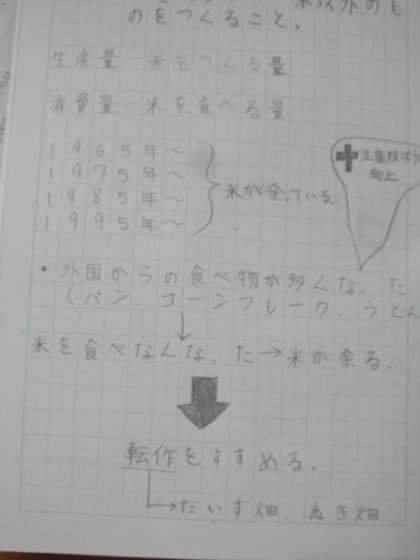 米以外のも
のをつくること。
生産量…米をつくる量
消費量…米を食べる量
1965年~
1975年~
1985年~
1995年~
米が余っている。
生産技術
向上
・外国からの食べ物が多くなった
(パン、コーンフレーク、うどん
米を食べなくなった→米が余る。
転作をすすめる。
→だいず畑、ねぎ畑